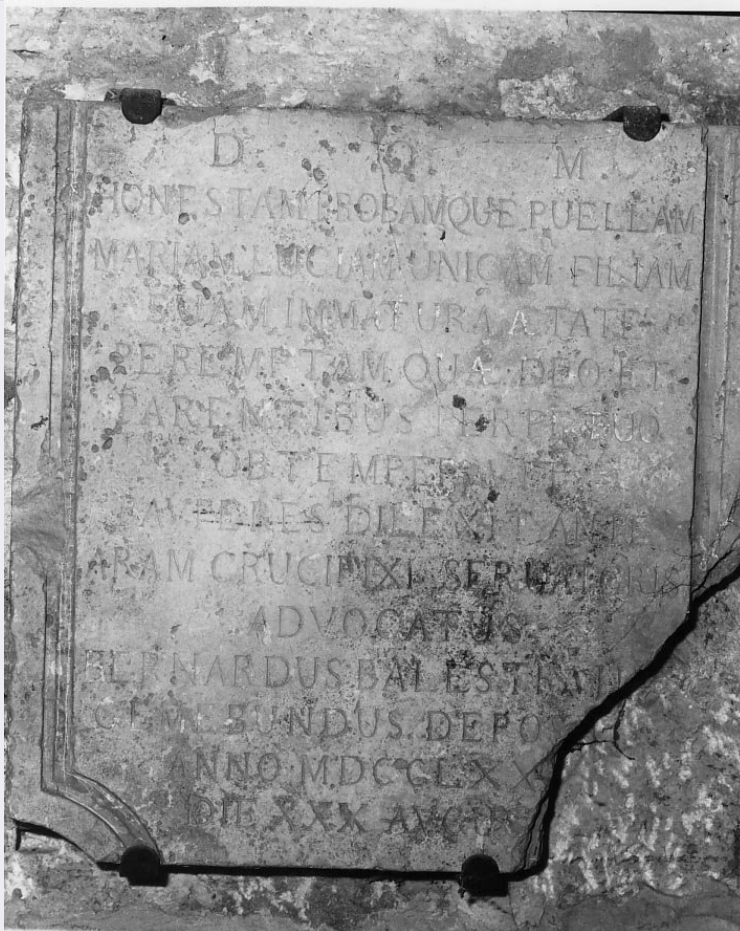 D O M
HONESTAM PROBAMQUE PUELLAM
MARIAM LUCIAM UNICAM FILIAM
SUAM IMMATURA ÆTATE
PEREMPTAM QUÆ DEO ET
PARENTIBUS PERPETUO
DILEXIT ANTE
ARAM CRUCIFIXI SERVATORIS
ADVOCATUS
BERNARDUS
GEMEBUNDUS DEPO
ANNO MDCCLXX
DIE XXX